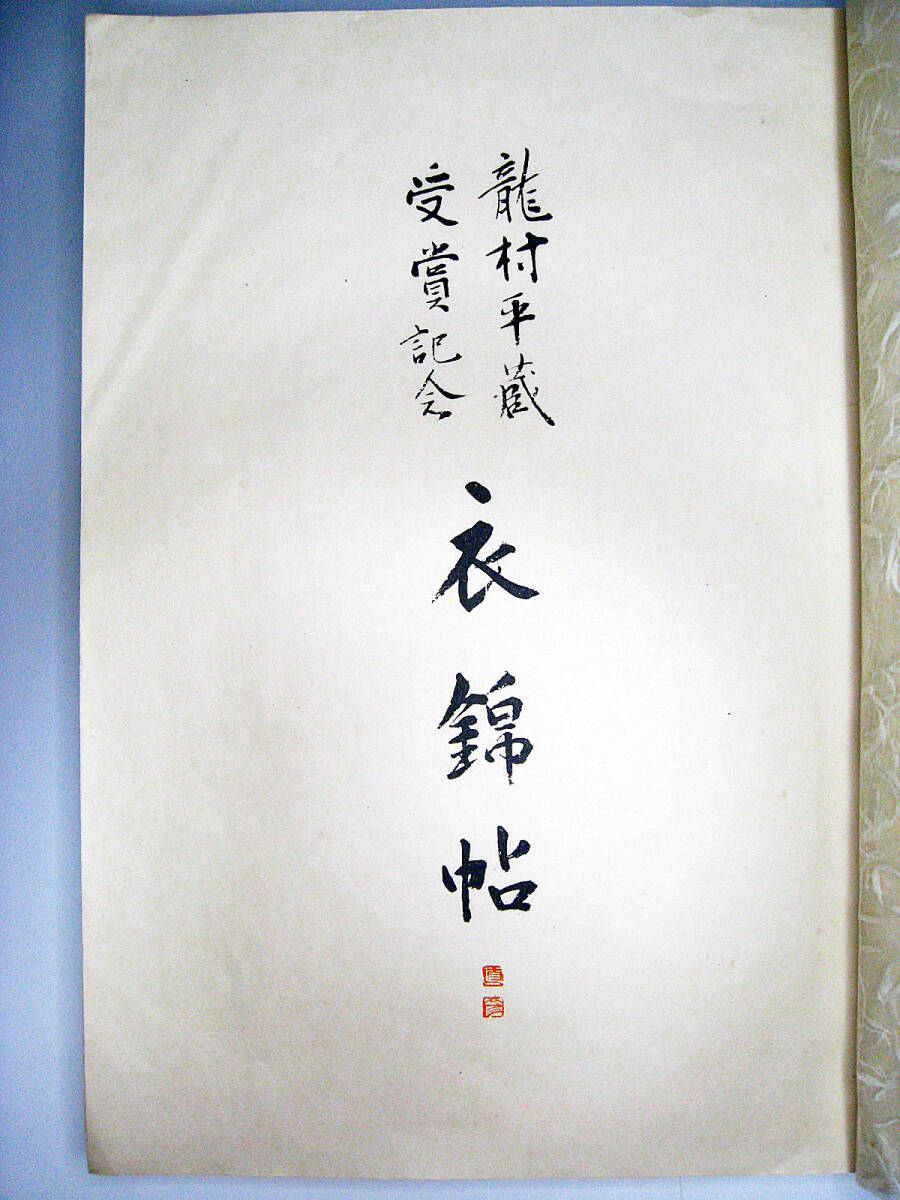 龍村平藏
受賞記念
衣錦帖